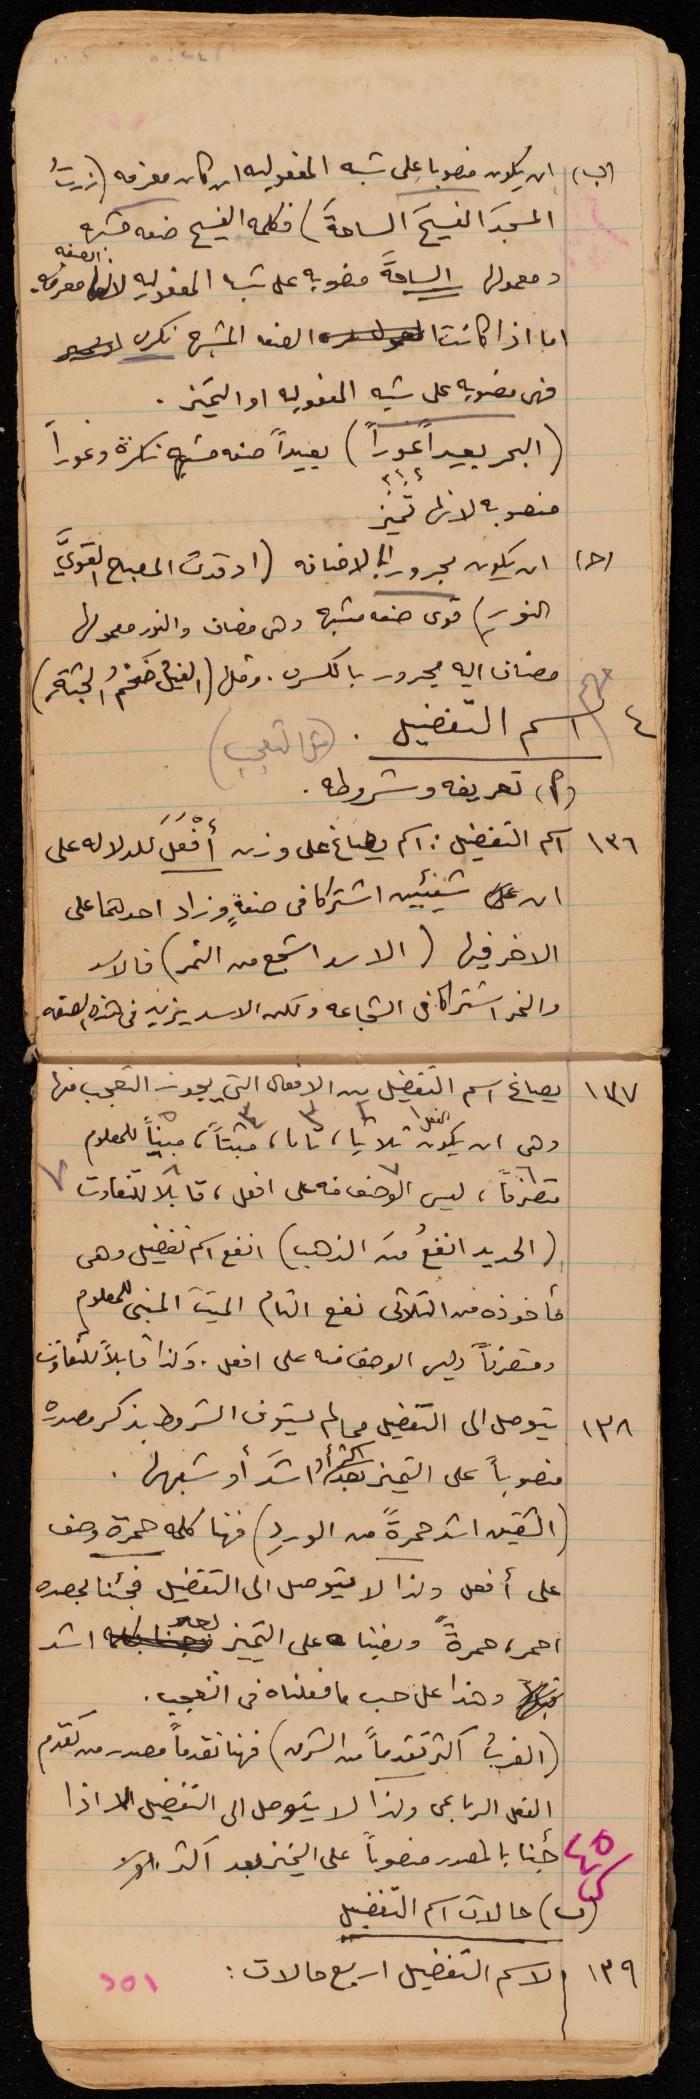 (ب) ان يكون منصوبا على شبه المفعوليه ان كان معرفه (زرتُ
المسجدَ الفسيحَ الساحةَ) فكلمه الفسيح صفه مشبهه
ومعمولها الساحةَ منصوبه على شبه المفعوليه لان الصفه معرفه.
اما اذا كانت الصفه المشبهه نكره
فهى منصوبه على شبه المفعوليه او التميز.
(البحر بعيداً غوراً) بعيداً صفه مشبهه نكرة وغوراً
منصوبه لانها تميز
(حـ) ان يكون مجرورا بالاضافه (اوقدتُ المصباح القويَّ
النورِ) قوى صفه مشبهه وهى مضاف والنور معمولها
مضاف اليه مجرور بالكسره. ومثلها (الفيلُ ضخمُ الجثةِ)
٤ اسم التفضيل. (مثل التعجب)
(م) تعريفه وشروطه.
١٣٦ اسم التفضيل: اسم يصاغ على وزن أَفْعَلَ للدلاله على
ان شيئين اشتركا فى صفةٍ وزاد احدهما على
الاخر فيها (الاسد اشجع من النمر) فالاسد
والنمر اشتركا فى الشجاعه ولكن الاسد يزيد فى هذه الصفه
١٣٧ يصاغ اسم التفضيل من الافعال التى يجوز التعجب منها
وهى ان يكون الفعل ثلاثيا، تاما، مثبتاً، مبنياً للمعلوم
متصرفاً، ليس الوصف منه على افعل، قابلاً للتفاوت
(الحديد انفعُ منَ الذهبِ) انفع اسم تفضيل وهى
مأخوذه من الثلاثى نفع التام المثبت المبنى للمعلوم
ومتصرفاً وليس الوصف منه على افعل. وكذا قابلاً للتفاوت
١٣٨ يتوصل الى التفضيل مما لم يستوف الشروط بذكر مصدره
منصوباً على التميز بعد اكثر أو اشدَ أو شبهها.
(الشقيق اشد حمرةً من الوردِ) فهنا كلمه حمرة وصف
على أفعل ولذا لا يتوصل الى التفضيل فجئنا بمصدر
احمر، حمرةً ونصبناه على التميز بعد اشد
وهذا على حسب ما فعلناه فى التعجب.
(الغربُ اكثر تقدماً من الشرق) فهنا تقدماً مصدر من تقدم
الفعل الرباعى ولذا لا يتوصل الى التفضيل الا اذا
جئنا بالمصدر منصوباً على التميز بعد اكثر
٤٥
(ب) حالات اسم التفضيل
١٣٩ لاسم التفضيل اربع حالات:
١٥٢